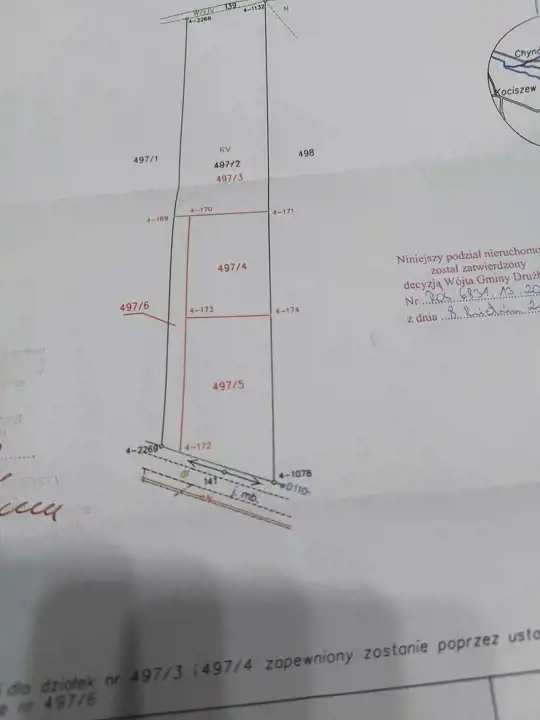 139
4-2268
4-1132
N
Chyn
Kociszew
497/1
RV
498
497/2
497/3
4-169
4-170
4-171
497/4
Niniejszy podział nieruchomo
został zatwierdzony
decyzją Wójta Gminy Druż
Nr
z dnia
497/6
4-173
4-174
497/5
4-2269
4-172
4-1078
dr
141
mb.
wD110
dla działek nr 497/3 i 497/4 zapewniony zostanie poprzez usta
nr 497/6